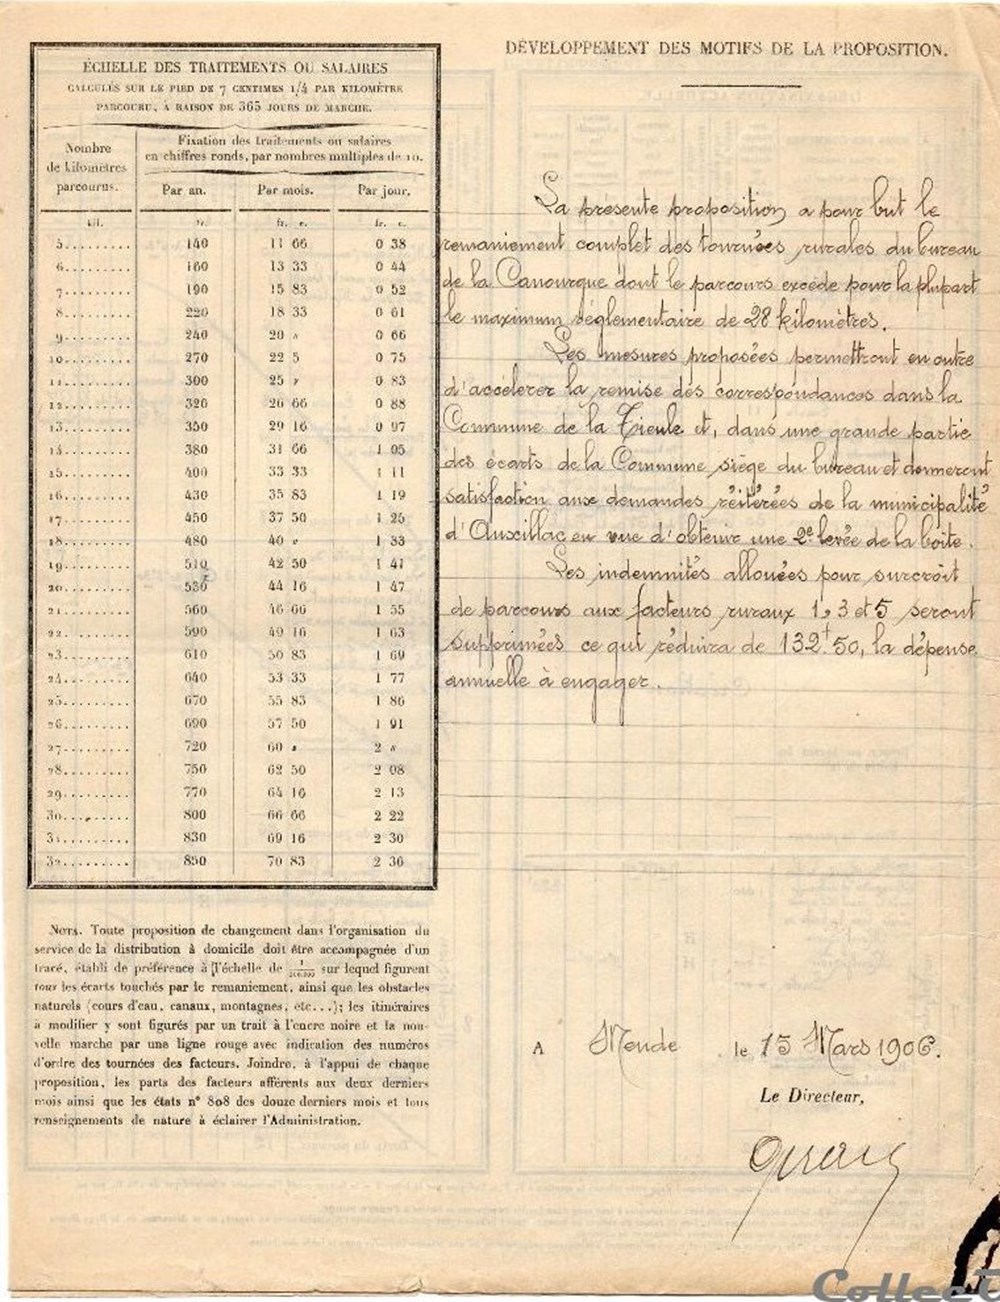 ÉCHELLE DES TRAITEMENTS OU SALAIRES
CALCULÉS SUR LE PIED DE 7 CENTIMES 1/4 PAR KILOMÈTRE
PARCOURU, À RAISON DE 365 JOURS DE MARCHE.
Nombre
de kilomètres
parcourus.
Fixation des traitements ou salaires
en chiffres ronds, par nombres multiples de 10.
Par an. Par mois. Par jour.
kil. fr. fr. c. fr. c.
5......... 140 11 66 0 38
6......... 160 13 33 0 44
7......... 190 15 83 0 52
8......... 220 18 33 0 61
9......... 240 20 » 0 66
10......... 270 22 5 0 75
11......... 300 25 » 0 83
12......... 320 26 66 0 88
13......... 350 29 16 0 97
14......... 380 31 66 1 05
15......... 400 33 33 1 11
16......... 430 35 83 1 19
17......... 450 37 50 1 25
18......... 480 40 » 1 33
19......... 510 42 50 1 41
20......... 530 44 16 1 47
21......... 560 46 66 1 55
22......... 590 49 16 1 63
23......... 610 50 83 1 69
24......... 640 53 33 1 77
25......... 670 55 83 1 86
26......... 690 57 50 1 91
27......... 720 60 » 2 »
28......... 750 62 50 2 08
29......... 770 64 16 2 13
30......... 800 66 66 2 22
31......... 830 69 16 2 30
32......... 850 70 83 2 36
NOTA. Toute proposition de changement dans l'organisation du
service de la distribution à domicile doit être accompagnée d'un
tracé, établi de préférence à l'échelle de sur lequel figurent
tous les écarts touchés par le remaniement, ainsi que les obstacles
naturels (cours d'eau, canaux, montagnes, etc...); les itinéraires
à modifier y sont figurés par un trait à l'encre noire et la nou-
velle marche par une ligne rouge avec indication des numéros
d'ordre des tournées des facteurs. Joindre, à l'appui de chaque
proposition, les parts des facteurs afférents aux deux derniers
mois ainsi que les états n° 808 des douze derniers mois et tous
renseignements de nature à éclairer l'Administration.
DÉVELOPPEMENT DES MOTIFS DE LA PROPOSITION.
La présente proposition a pour but le
remaniement complet des tournées rurales du bureau
de la Canourgue dont le parcours excède pour la plupart
le maximum réglementaire de 28 kilomètres.
Les mesures proposées permettront en outre
d'accélérer la remise des correspondances dans la
Commune de la Tieule et, dans une grande partie
des écarts de la Commune siège du bureau et donneront
satisfaction aux demandes réitérées de la municipalité
d'Auxillac en vue d'obtenir une 2e levée de la boîte.
Les indemnités allouées pour surcroît
de parcours aux facteurs ruraux 1, 3 et 5 seront
supprimées ce qui réduira de 132f50, la dépense
annuelle à engager.
A Mende le 15 Mars 1906.
Le Directeur,
Collec